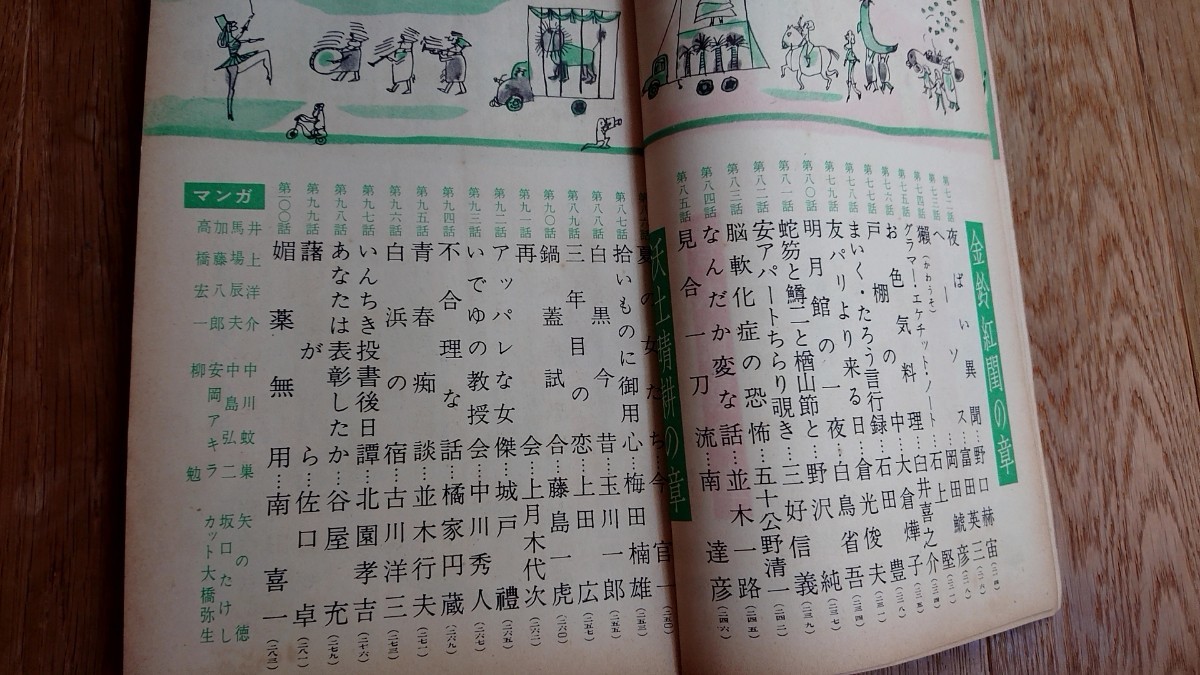 金鈴紅閨の章
第七二話 夜ばい異聞…野口赫宙
第七三話 へーソス…富田英三
第七四話 獺(かわうそ)…岡田鯱彦
第七五話 グラマー・エケチット・ノート…石上堅
第七六話 お色気料理…臼井喜之介
第七七話 戸棚の中…大倉燁子
第七八話 まいく・たろう言行録…石田豊
第七九話 友パリより来る日…倉光俊夫
第八〇話 明月館の一夜…白鳥省吾
第八一話 蛇笏と鱒二と楢山節と…野沢純
第八二話 安アパートちらり覗き…三好信義
第八三話 脳軟化症の恐怖…五十公野清一
第八四話 なんだか変な話…並木一路
第八五話 見合一刀流…南達彦
夏の女たち今官一
第八七話 拾いものに御用心…梅田楠雄
第八八話 白黒今昔…玉川一郎
第八九話 三年目の恋…上田広
第九〇話 鍋蓋試合…藤島一虎
第九一話 再会…上月木代次
第九二話 アッパレな女傑…城戸禮
第九三話 いでゆの教授会…中川秀人
第九四話 不合理な話…橘家円蔵
第九五話 青春痴談…並木行夫
第九六話 白浜の宿…古川洋三
第九七話 いんちき投書後日譚…北園孝吉
第九八話 あなたは表彰したか…谷屋充
第九九話 藷がら…佐口卓
第一〇〇話 媚薬無用…南喜一
マンガ
井上洋介
馬場辰夫
加藤八郎
高橋宏一
中川蚊巣
中島弘二
安岡アキラ
柳勉
矢の徳
坂口たけし
カット 大橋弥生